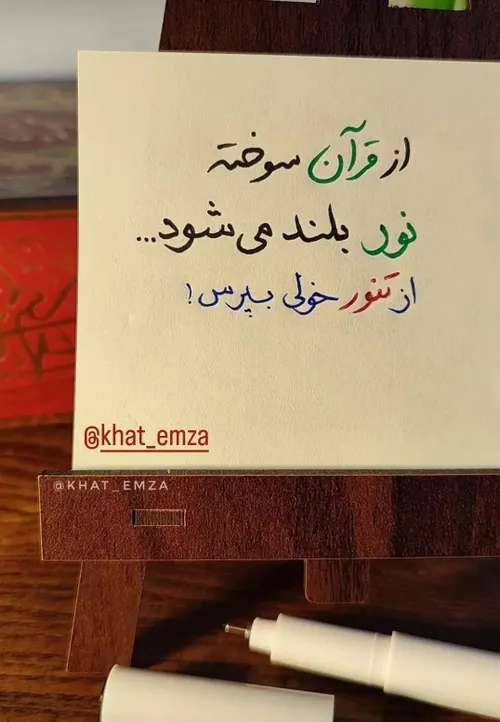 از قرآن سوخته
نور بلند می‌شود...
از تنور خولی بپرس!
@khat_emza
@KHAT_EMZA